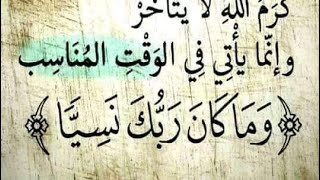 كَرَمُ اللهِ لَا يَتَأَخَّرْ
وإنّما يأْتِي فِي الوَقْتِ المُنَاسِب
﴿ وَمَا كَانَ رَبُّكَ نَسِيًّا ﴾